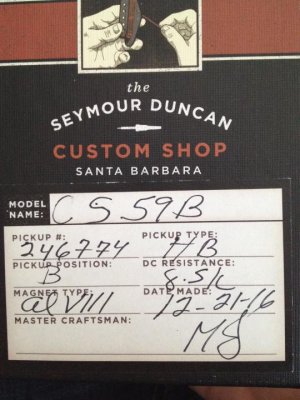 the
SEYMOUR DUNCAN
CUSTOM SHOP
SANTA BARBARA
MODEL NAME: CS59B
PICKUP #: 246774
PICKUP TYPE: HB
PICKUP POSITION: B
DC RESISTANCE: 8.5k
MAGNET TYPE: al VIII
DATE MADE: 12-21-16
MASTER CRAFTSMAN: MJ